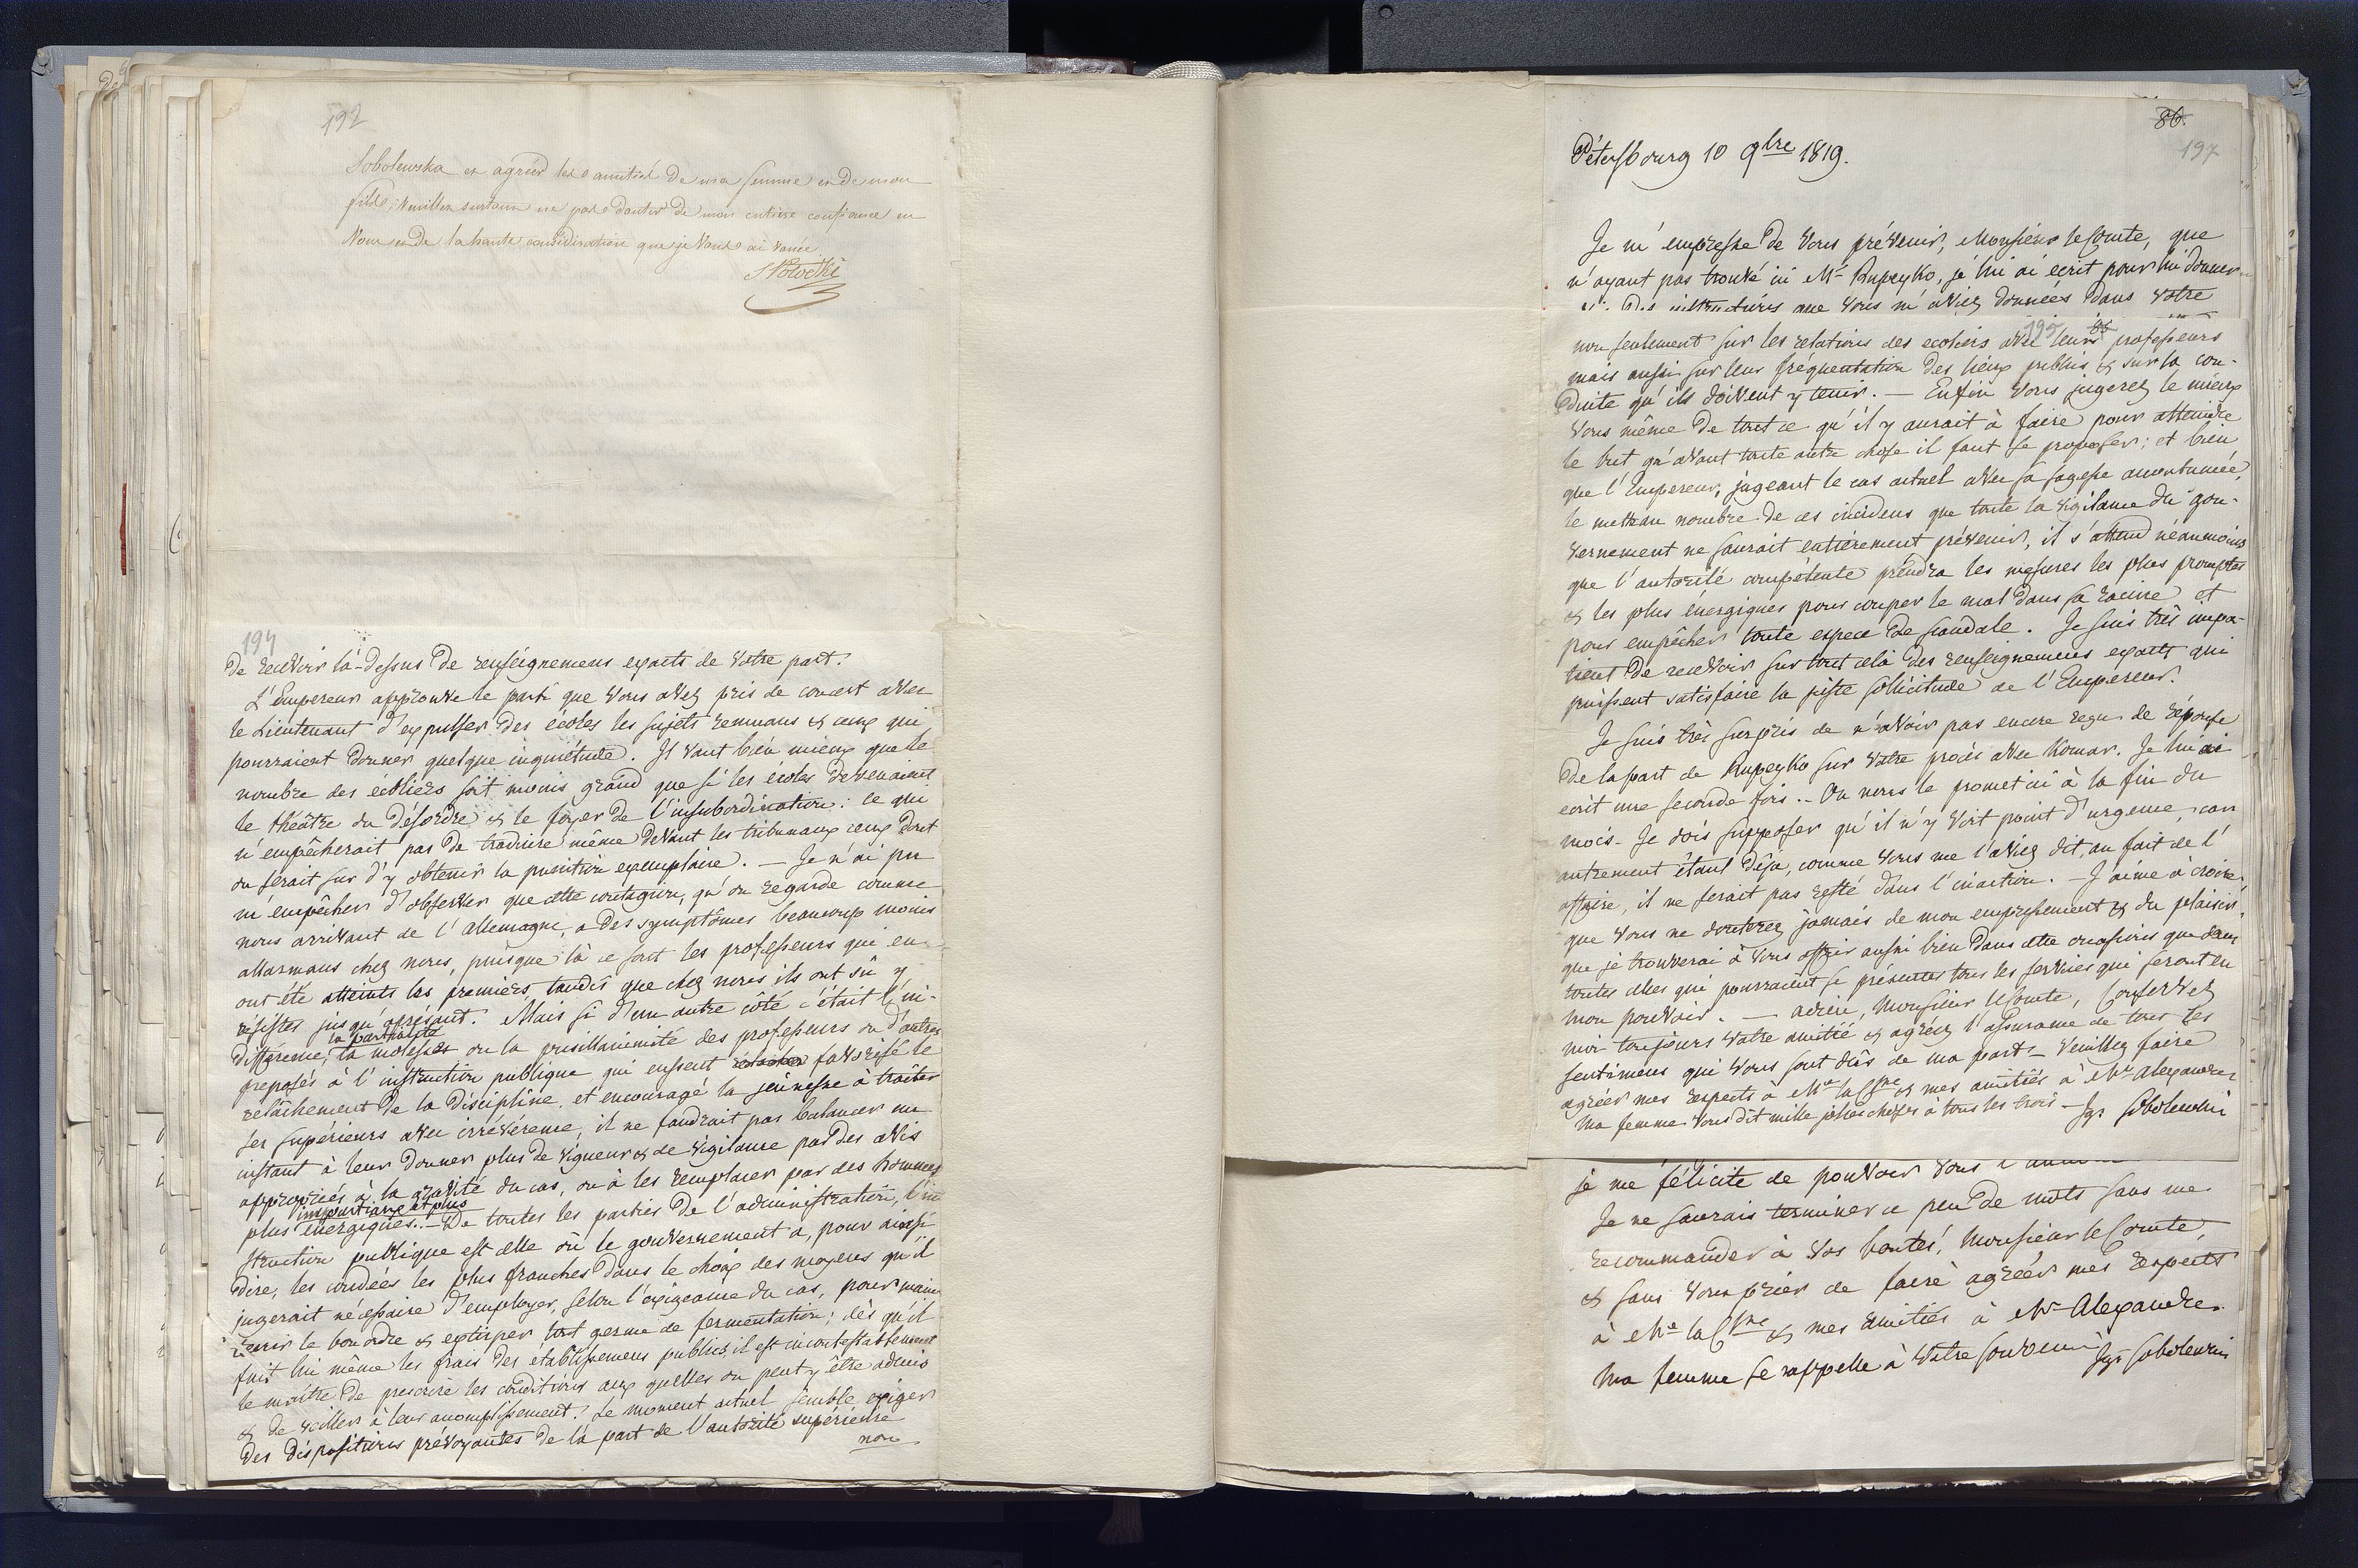 192
Sobolewska et agréer les amitiés de ma femme et de mon
fils. Veuillez surtout ne pas douter de mon entière confiance en
Vous et de la haute considération que je Vous ai vouée
SPotocki
194
de recevoir là-dessus de renseignemens exacts de Votre part.
L'Empereur approuve le parti que Vous avez pris de concert avec
le Lieutenant d'expulser des écoles les sujets remuans & ceux qui
pourraient donner quelque inquiétude. Il vaut bien mieux que le
nombre des écoliers soit moins grand que si les écoles devenaient
le théâtre du désordre & le foyer de l'insubordination: ce qui
n'empêcherait pas de traduire même devant les tribunaux ceux dont
on serait sur d'y obtenir la punition exemplaire. — Je n'ai pu
m'empêcher d'observer que cette contagion, qu'on regarde comme
nous arrivant de l'allemagne, a des symptômes beaucoup moins
allarmans chez nous, puisque là ce sont les professeurs qui en
ont été atteints les premiers, tandis que chez nous ils ont sû y
résister jusqu'aprésant. Mais si d'un autre côté c'était l'in-
la partialité
différence, la molesse ou la pusillanimité des professeurs ou d'autres
preposés à l'instruction publique qui eussent favorisé le
relâchement de la discipline, et encouragé la jeunesse à traiter
ses supérieurs avec irrévérence, il ne faudrait pas balancer un
instant à leur donner plus de vigueur & de vigilance par des avis
appropriés à la gravité du cas, ou à les remplacer par des hommes
impartiaux et plus
plus énergiques. — De toutes les parties de l'administration, l'in
struction publique est celle où le gouvernement a, pour ainsi
dire, les coudées les plus franches dans le choix des moyens qu'il
jugerait nécessaire d'employer, selon l'exigeance du cas, pour main
tenir le bon ordre & extirper tout germe de fermentation; dès qu'il
fait lui même les frais des établissemens publics, il est incontestablement
le maître de prescrire les conditions aux quelles on peut y être admis
& de veiller à leur accomplissement. Le moment actuel semble exiger
des dispositions prévoyantes de la part de l'autorité supérieure
non
86.
197
Pétersbourg 10 9bre 1819.
Je m'empresse de Vous prévenir, Monsieur le Comte, que
n'ayant pas trouvé ici Mr Rupeyko, je lui ai écrit pour lui donner
des instructions que Vous m'aviez données dans Votre
195
85
non seulement sur les relations des ecoliers avec leurs professeurs
mais aussi sur leur fréquentation des lieux publics & sur la con-
duite qu'ils doivent y tenir. — Enfin Vous jugerez le mieux
Vous même de tout ce qu'il y aurait à faire pour atteindre
le but qu'avant toute autre chose il faut se proposer; et bien
que l'Empereur, jugeant le cas actuel avec sa sagesse accoutumée,
le mette au nombre de ces incidens que toute la vigilance du gou-
vernement ne saurait entièrement prévenir, il s'attend néanmoins
que l'autorité compétente prendra les mesures les plus promptes
& les plus énergiques pour couper le mal dans sa racine et
pour empêcher toute espece de scandale. Je suis très impa-
tient de recevoir sur tout celà des renseignemens exacts qui
puissent satisfaire la juste sollicitude de l'Empereur.
Je suis très surpris de n'avoir pas encore reçu de réponse
de la part de Rupeyko sur Votre procès avec Komar. Je lui ai
ecrit une seconde fois. — On nous le promet ici à la fin du
mois. Je dois supposer qu'il n'y voit point d'urgence, car
autrement étant déja, comme Vous me l'aviez dit, au fait de l'
affaire, il ne serait pas resté dans l'inaction. — J'aime à croire
que Vous ne douterez jamais de mon empressement & du plaisir
que je trouverai à Vous offrir aussi bien dans cette occasion que dans
toutes celles qui pourraient se présenter tous les services qui seront en
mon pouvoir. — adieu, Monsieur le Comte, Conservez
moi toujours Votre amitié & agréez l'assurance de tous les
sentimens qui Vous sont dûs de ma part. — Veuillez faire
agréer mes respects à Me la Csse & mes amitiés à Mr Alexandre
Ma femme Vous dit mille jolies choses à tous les trois — Ign Sobolewski
je me félicite de pouvoir Vous
Je ne saurais terminer ce peu de mots sans me
recommander à Vos bontés, Monsieur le Comte,
& sans Vous prier de faire agréer mes respects
à Me la Csse & mes amitiés à Mr Alexandre.
Ma femme se rappelle à Votre souvenir
Ign Sobolewski